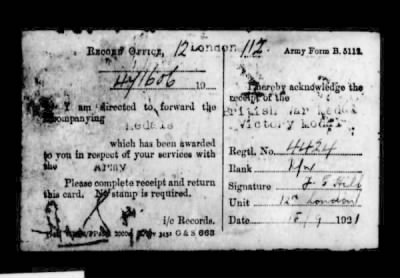 RECORD OFFICE, 12 London 112.
Army Form B. 5112.
44/1606 19
I am directed to forward the
accompanying
Medals
which has been awarded
to you in respect of your services with
the ARMY
Please complete receipt and return
this card. No stamp is required.
i/c Records.
G & S 663
I hereby acknowledge the
receipt of the
British War Medal
Victory Medal
Regtl. No. 4424
Rank
Signature
Unit 12th London
Date 15/9 1921